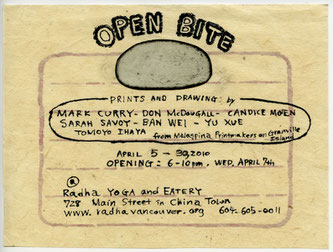 OPEN BITE
PRINTS AND DRAWING by
MARK CURRY - DON McDOUGALL - CANDICE MOEN
SARAH SAVOY - BAN WEI - YU XUE
TOMOYO IHAYA from Malaspina Printmakers on Granville Island
APRIL 5 - 30, 2010
OPENING: 6-10pm. WED. APRIL 7th
@
Radha YOGA and EATERY
728 Main Street in China Town
www.radhavancouver.org 604-605-0011